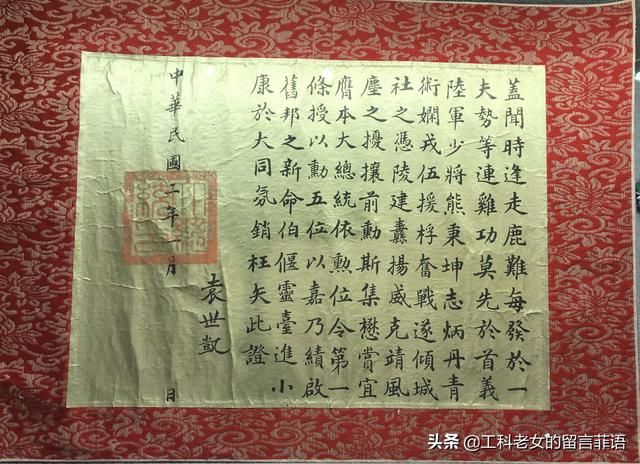 蓋聞時逢走鹿難每發於一
夫勢等連雞功莫先於首義
陸軍少將熊秉坤志炳丹青
術嫻戎伍援桴奮戰遂傾城
社之憑陵建纛揚威克靖風
塵之擾攘前勳斯集懋賞宜
膺本大總統依勳位令第一
條授以勳五位以嘉乃績啟
舊邦之新命伯偃靈臺進小
康於大同氛銷枉矢此證
袁世凱
中華民國二年一月 日
头条 @工科老女的留言菲语